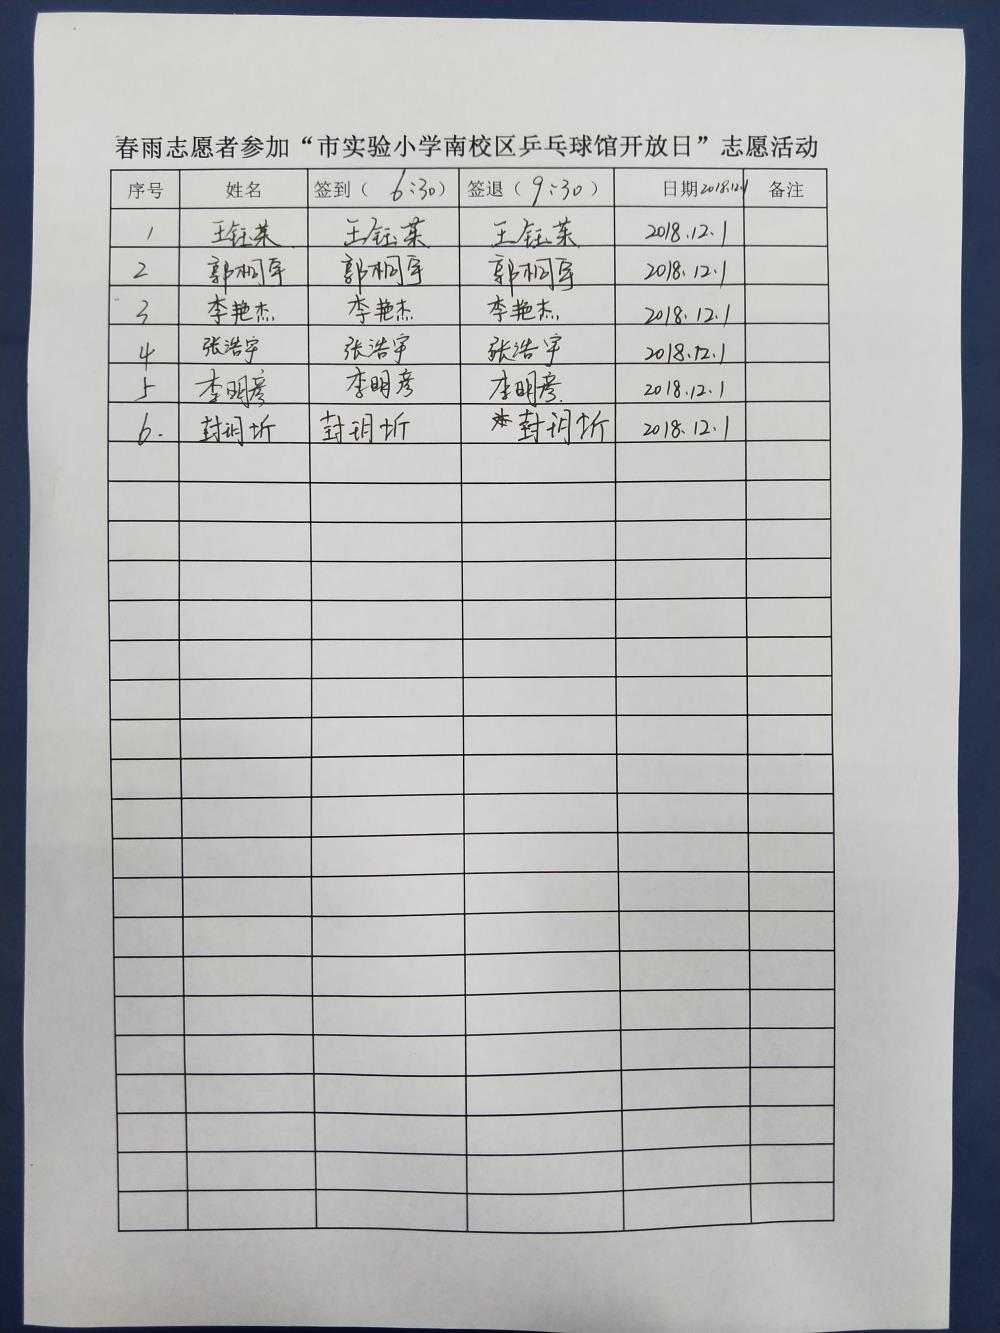 春雨志愿者参加“市实验小学南校区乒乓球馆开放日”志愿活动
序号 姓名 签到（ 6:30） 签退（ 9:30 ） 日期2018.12.1 备注
1 王钰莱 王钰莱 王钰莱 2018.12.1
2 郭桐军 郭桐军 郭桐军 2018.12.1
3 李艳杰 李艳杰 李艳杰 2018.12.1
4 张浩宇 张浩宇 张浩宇 2018.12.1
5 李明彦 李明彦 李明彦 2018.12.1
6. 封玥圻 封玥圻 封玥圻 2018.12.1